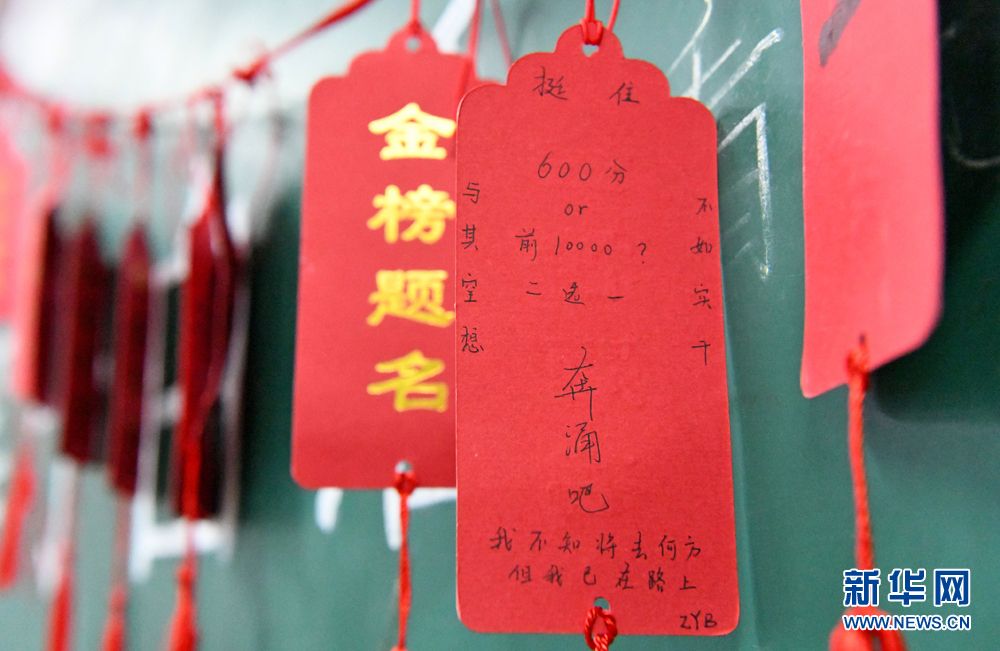 金榜题名
挺住
600分
or
前10000？
二选一
与其空想
不如实干
奔涌吧
我不知将去何方
但我已在路上
ZYB
新华网
WWW.NEWS.CN